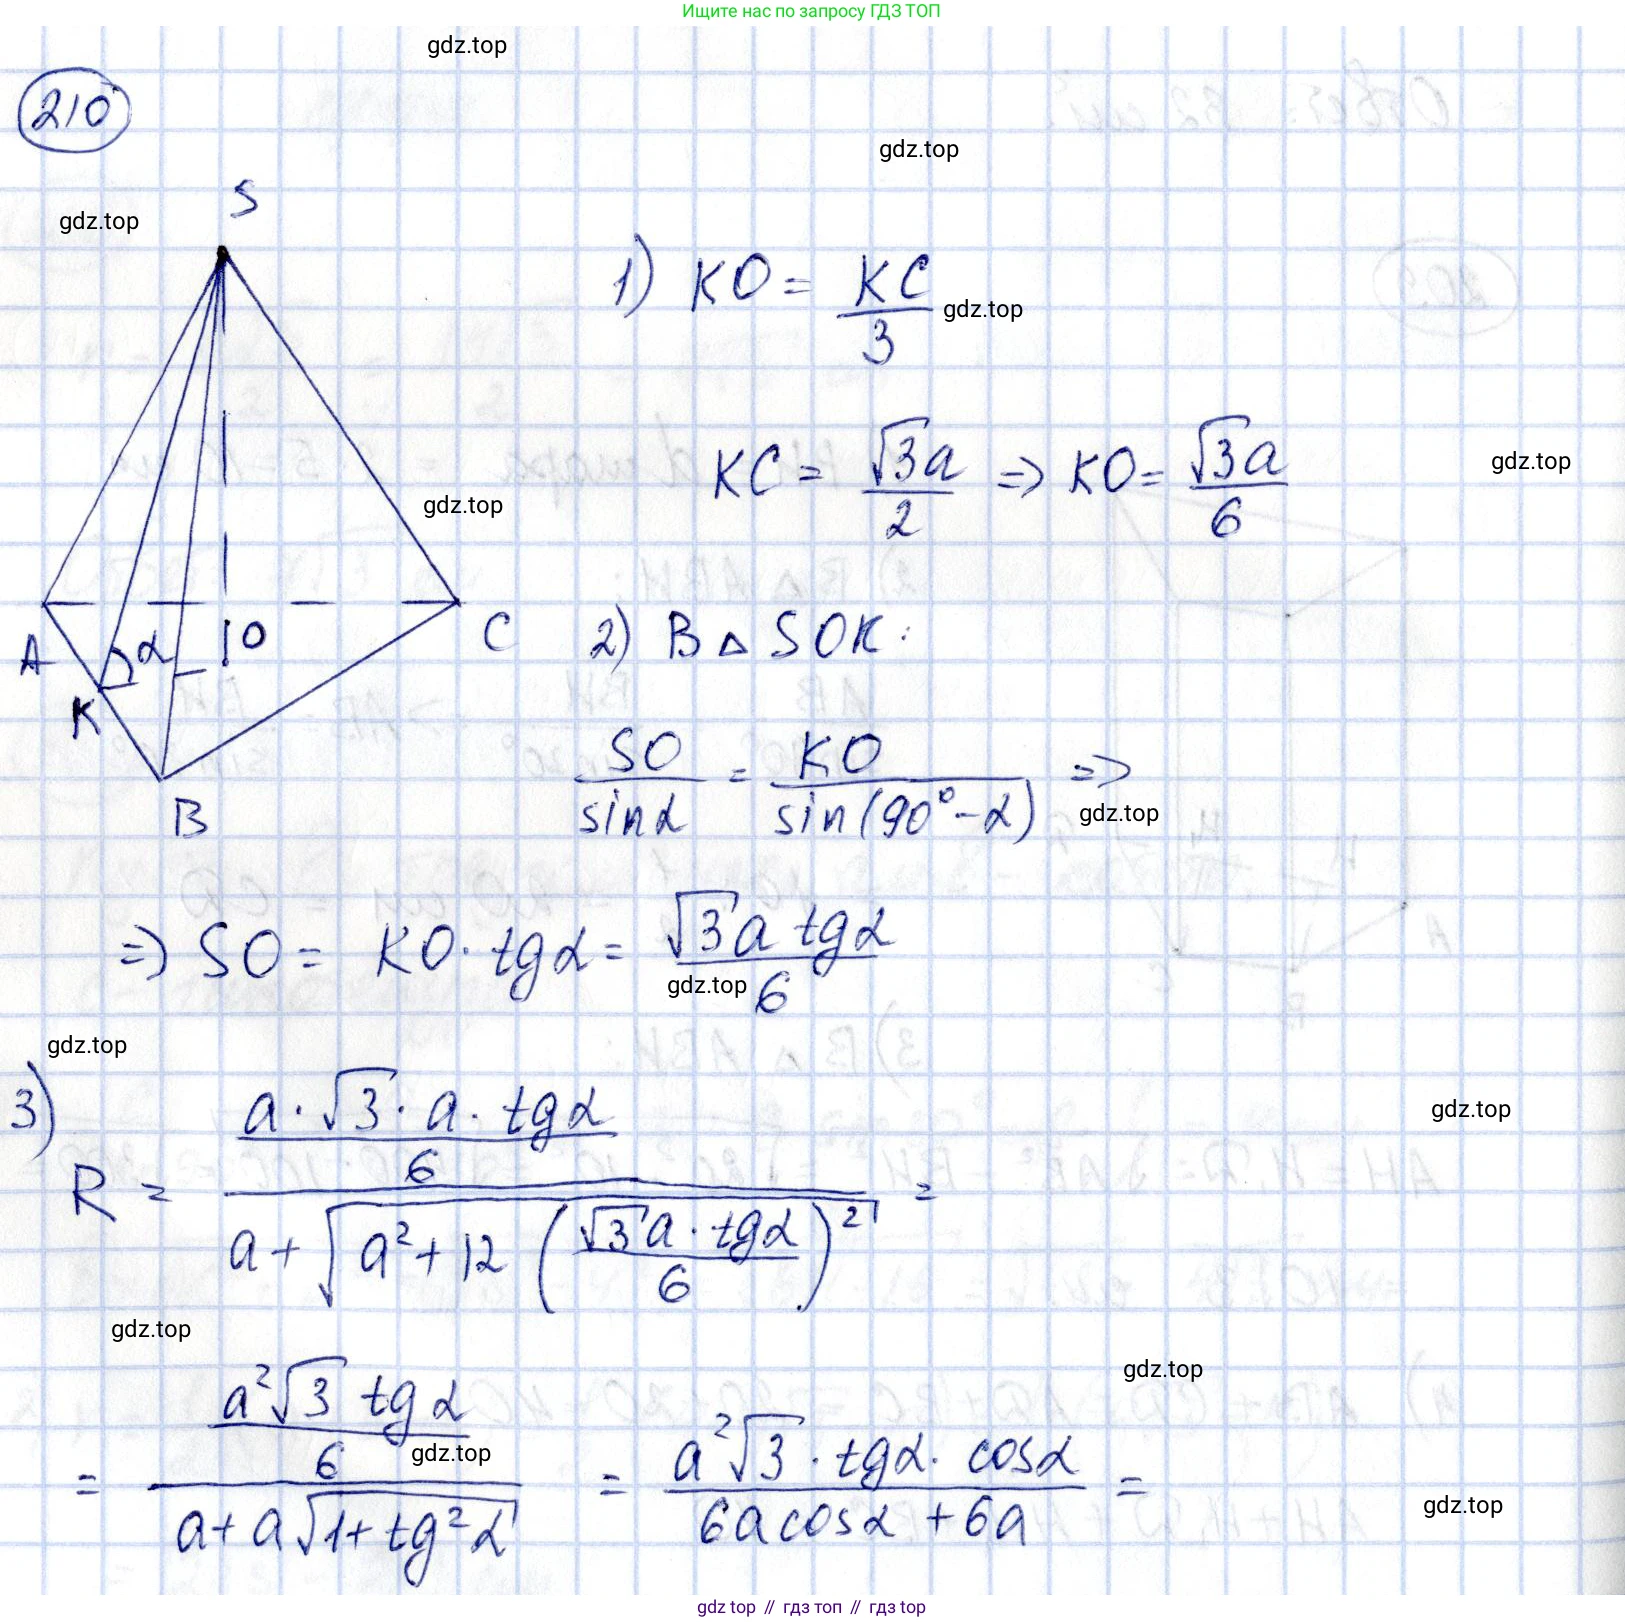 Ищите нас по запросу ГДЗ ТОП
gdz.top
210
gdz.top
S
gdz.top
1) KO = KC/3
gdz.top
KC = √3a/2 => KO = √3a/6
gdz.top
gdz.top
A
K
α
O
C
B
2) В △ SOK:
SO/sinα = KO/sin(90°-α) =>
gdz.top
=> SO = KO · tgα = √3a tgα/6
gdz.top
gdz.top
3) R = (a·√3·a·tgα/6)/(a+√(a²+12(√3a·tgα/6)²)) =
gdz.top
gdz.top
gdz.top
= (a²√3 tgα/6)/(a+a√(1+tg²α)) = (a²√3·tgα·cosα)/(6acosα+6a) =
gdz.top
gdz.top
gdz top // гдз топ // гдз top